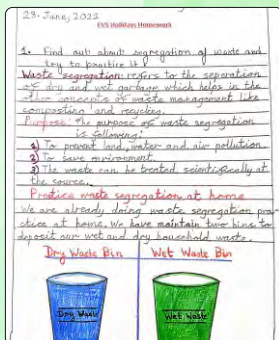 29. June, 2022
EVS Holidays Homework
1. Find out about segregation of waste and
try to practice it?
Waste segregation: refers to the separation
of dry and wet garbage which helps in the
other concepts of waste management like
composting and recycling.
Purpose: The purpose of waste segregation
is following:
1) To prevent land, water and air pollution.
2) To save environment.
3) The waste can be treated scientifically at
the source.
Practice waste segregation at home
We are already doing waste segregation pra-
ctice at home. We have maintain two bins to
deposit our wet and dry household waste.
Dry Waste Bin
Wet Waste Bin
Dry Waste
Wet Waste